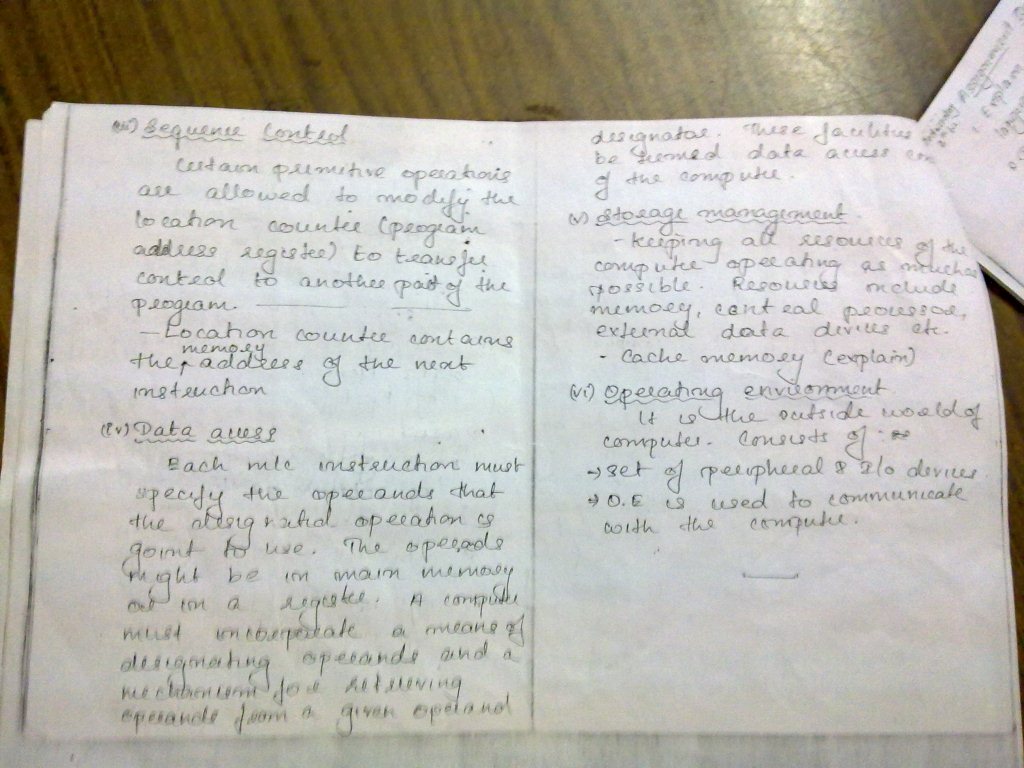 (iii) Sequence Control
Certain primitive operations
are allowed to modify the
location counter (program
address register) to transfer
control to another part of the
program.
- Location counter contains
memory
the address of the next
instruction
(iv) Data access
Each m/c instruction must
specify the operands that
the designated operation is
goint to use. The operands
might be in main memory
or in a register. A computer
must incorporate a means of
designating operands and a
mechanism for retrieving
operands from a given operand
designator. These facilities
be termed data access con
of the computer.
(v) Storage management
- Keeping all resources of the
computer operating as much as
possible. Resources include
memory, central processor,
external data devices etc.
- Cache memory (explain)
(vi) Operating environment
It is the outside world of
computer. Consists of
→ set of peripheral & I/o devices
→ O.E is used to communicate
with the computer.
Assignment
Explain